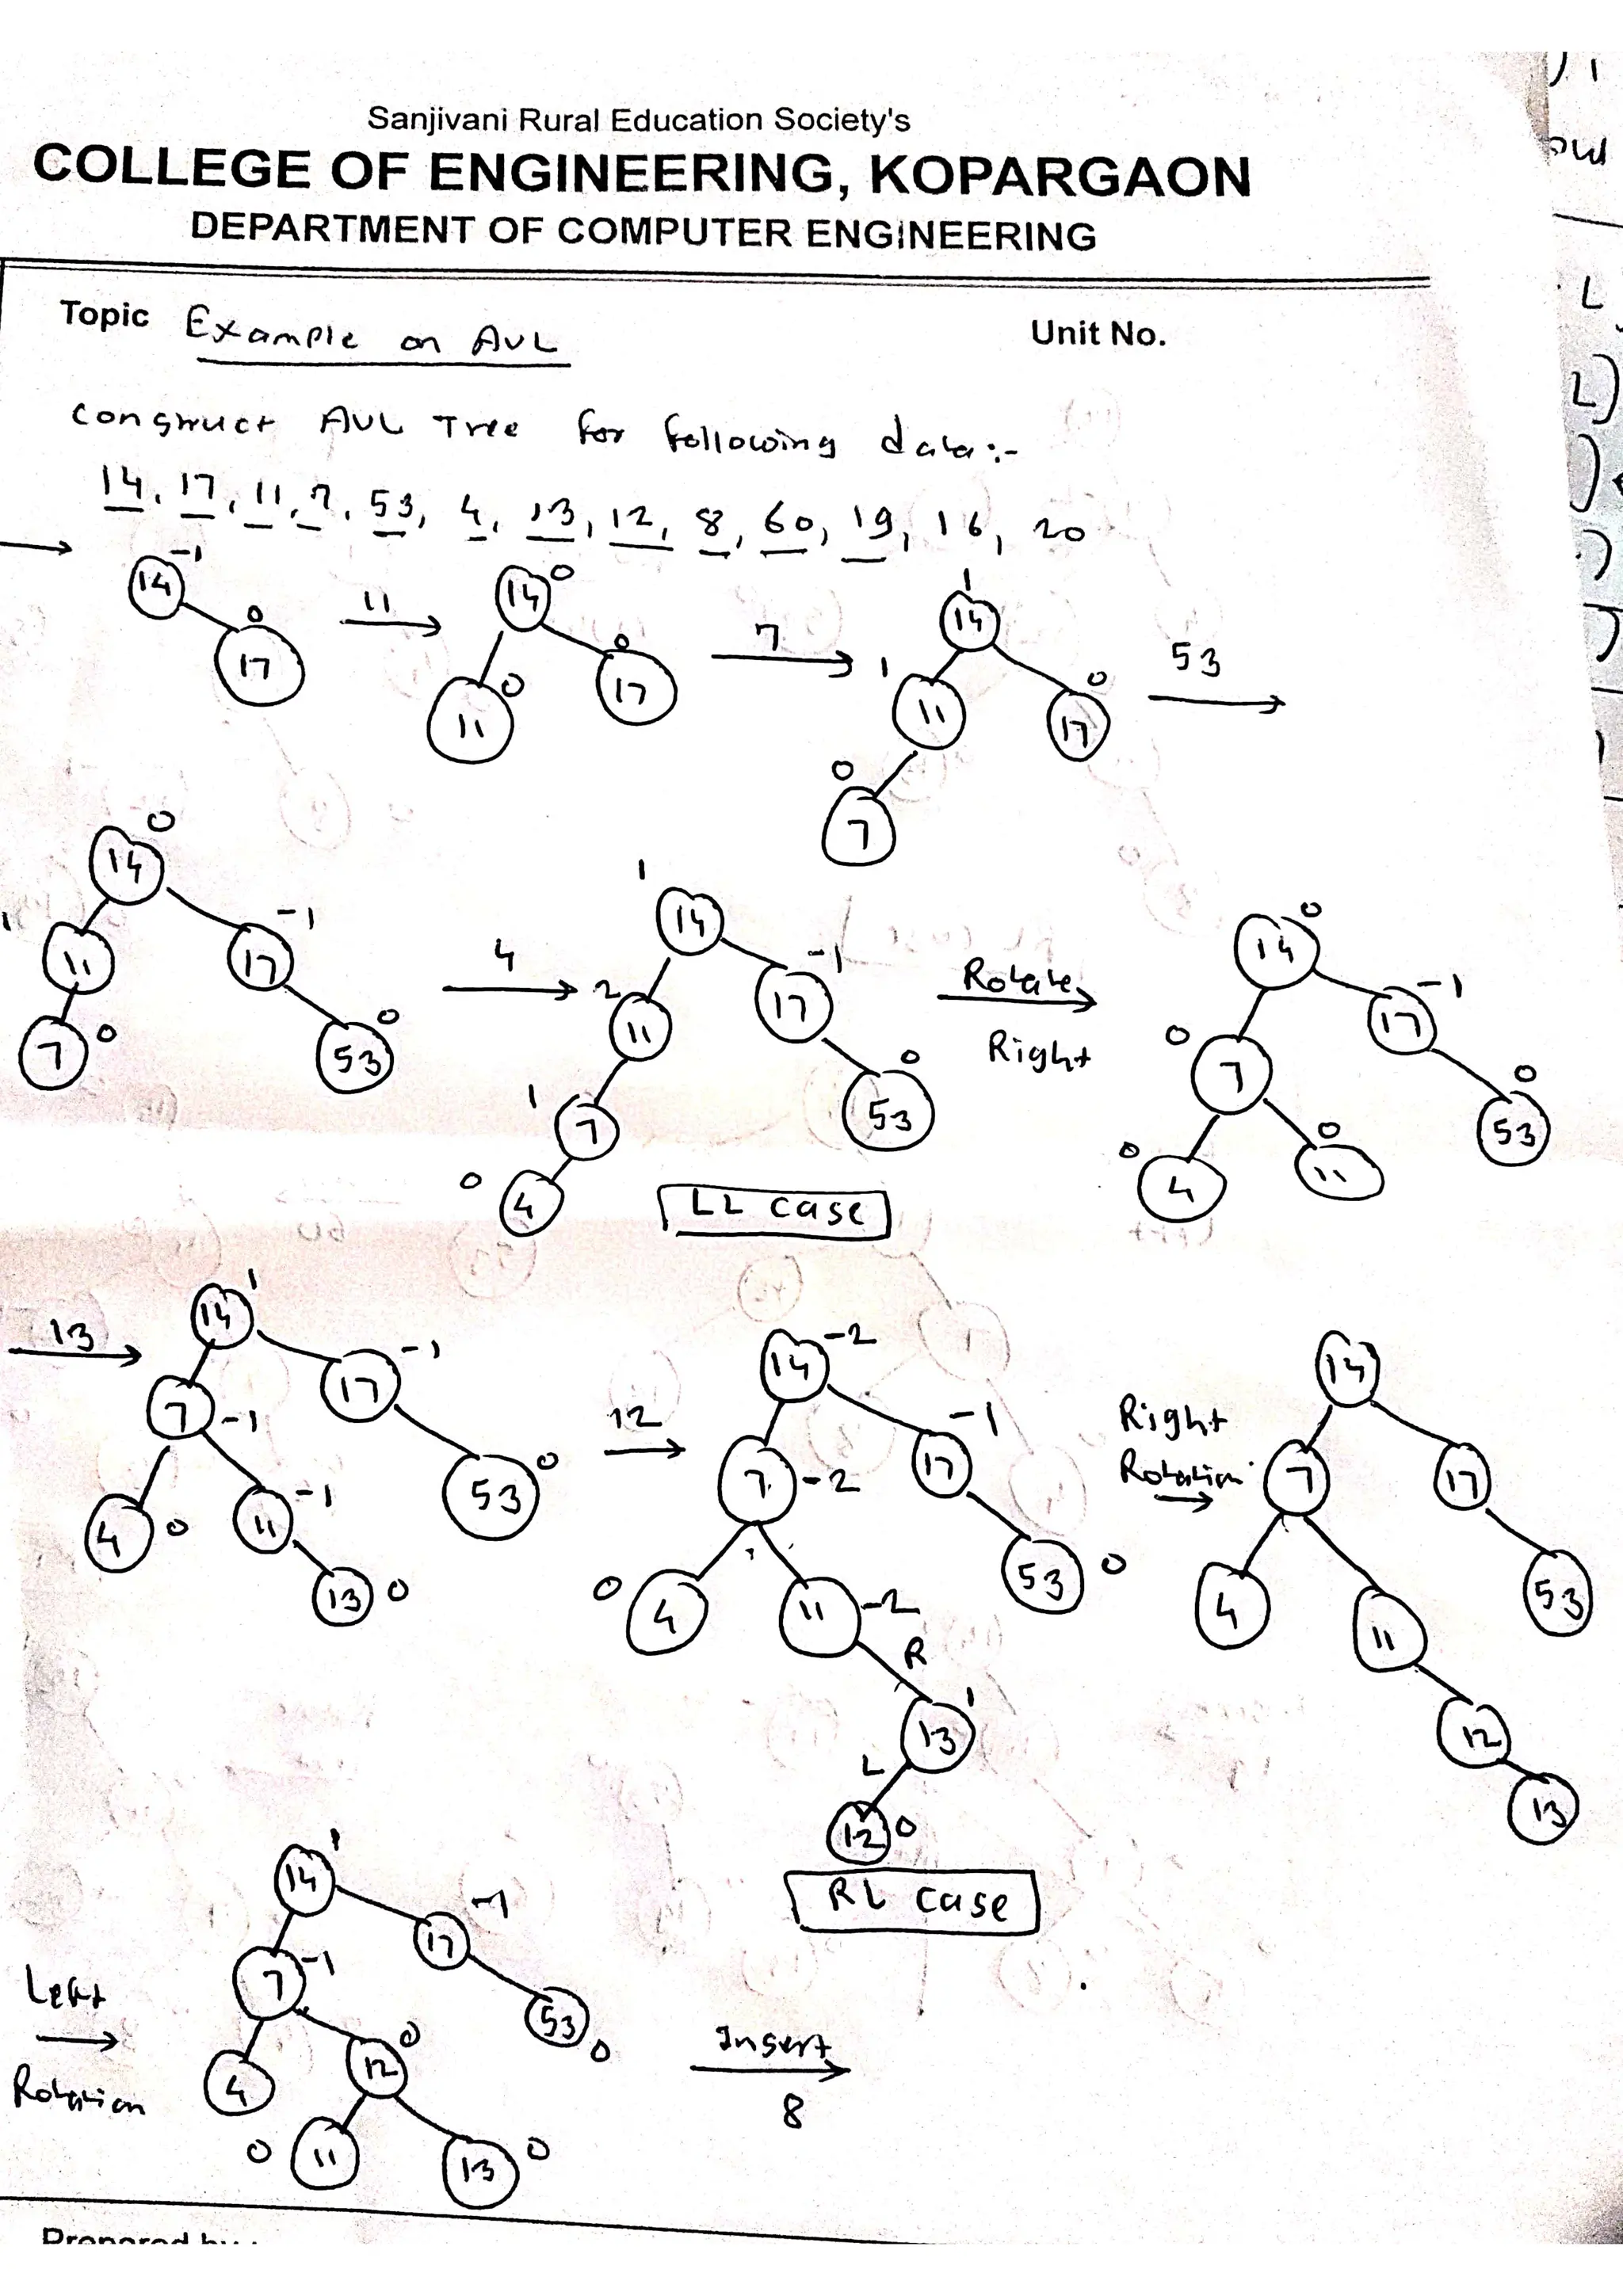 Sanjivani Rural Education Society's
COLLEGE OF ENGINEERING, KOPARGAON
DEPARTMENT OF COMPUTER ENGINEERING
Topic Example on AVL Unit No.
Construct AVL Tree for following data:-
14, 17, 11, 7, 53, 4, 13, 12, 8, 60, 19, 16, 20
14 -1 17 0
11
14 0 11 0 17 0
7
14 1 11 1 17 0 7 0
53
14 0 11 1 17 -1 7 0 53 0
4
14 1 11 2 17 -1 7 1 53 0 4 0
LL case
Rotate
Right
14 0 7 0 17 -1 4 0 11 0 53 0
13
14 1 7 -1 17 -1 4 0 11 -1 53 0 13 0
12
14 -2 7 -2 17 -1 4 0 11 -2 53 0 R 13 1 L 12 0
RL case
Right
Rotation
14 7 17 4 11 53 12 13
Left
Rotation
14 1 7 -1 17 -1 4 12 0 53 0 11 0 13 0
Insert
8